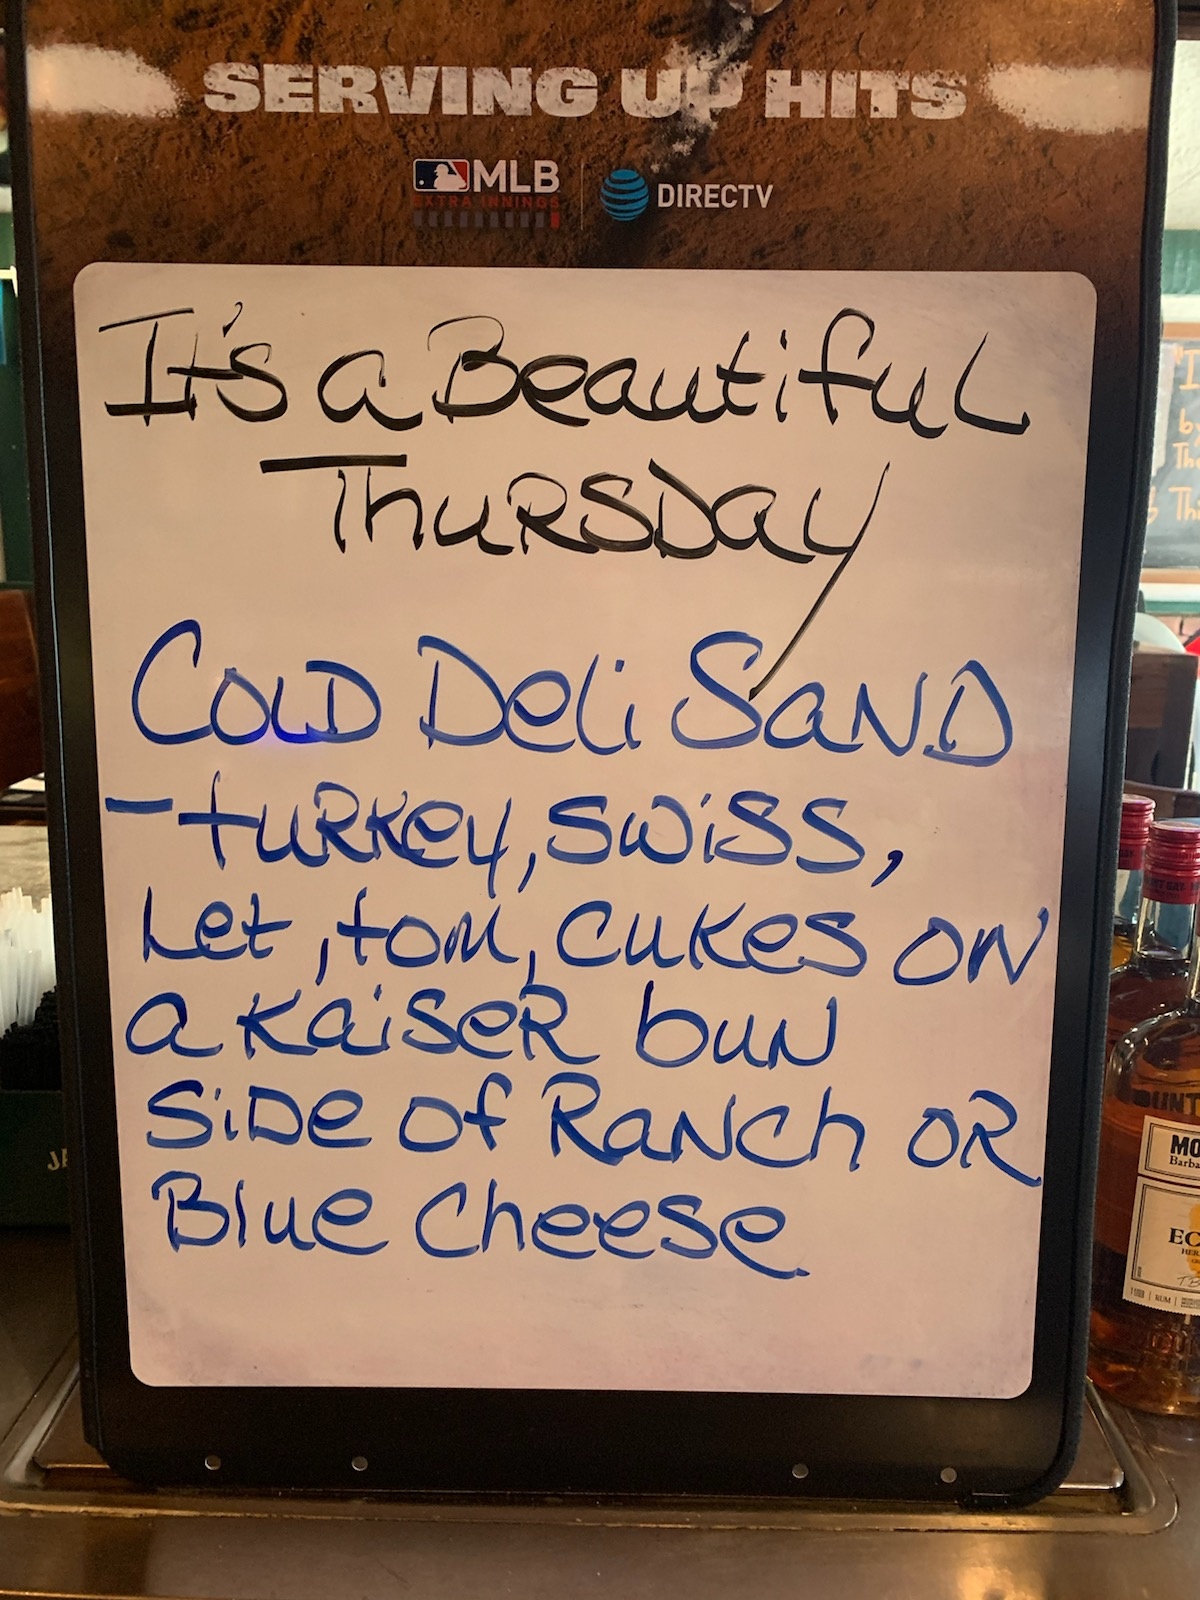 SERVING UP HITS
MLB
EXTRA INNINGS
DIRECTV
It's a Beautiful
Thursday
Cold Deli Sand
- turkey, swiss,
Let, tom, cukes on
a kaiser bun
side of Ranch or
Blue cheese
MO
Barba
EC
RUM